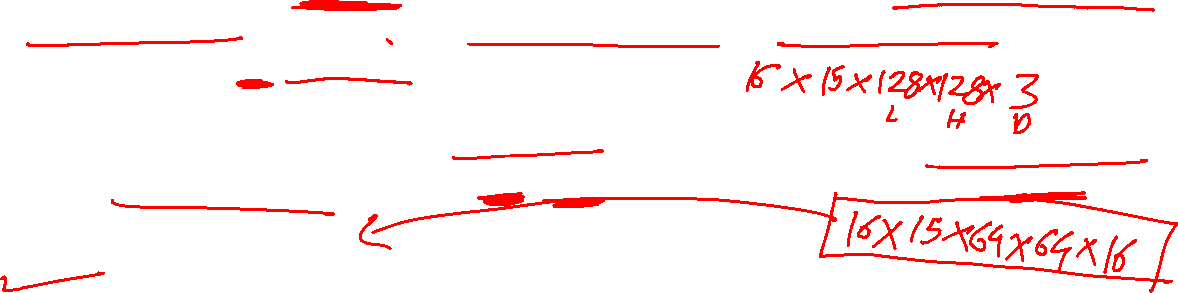 16 × 15 × 128 × 128 × 3
L H D
16 × 15 × 64 × 64 × 16